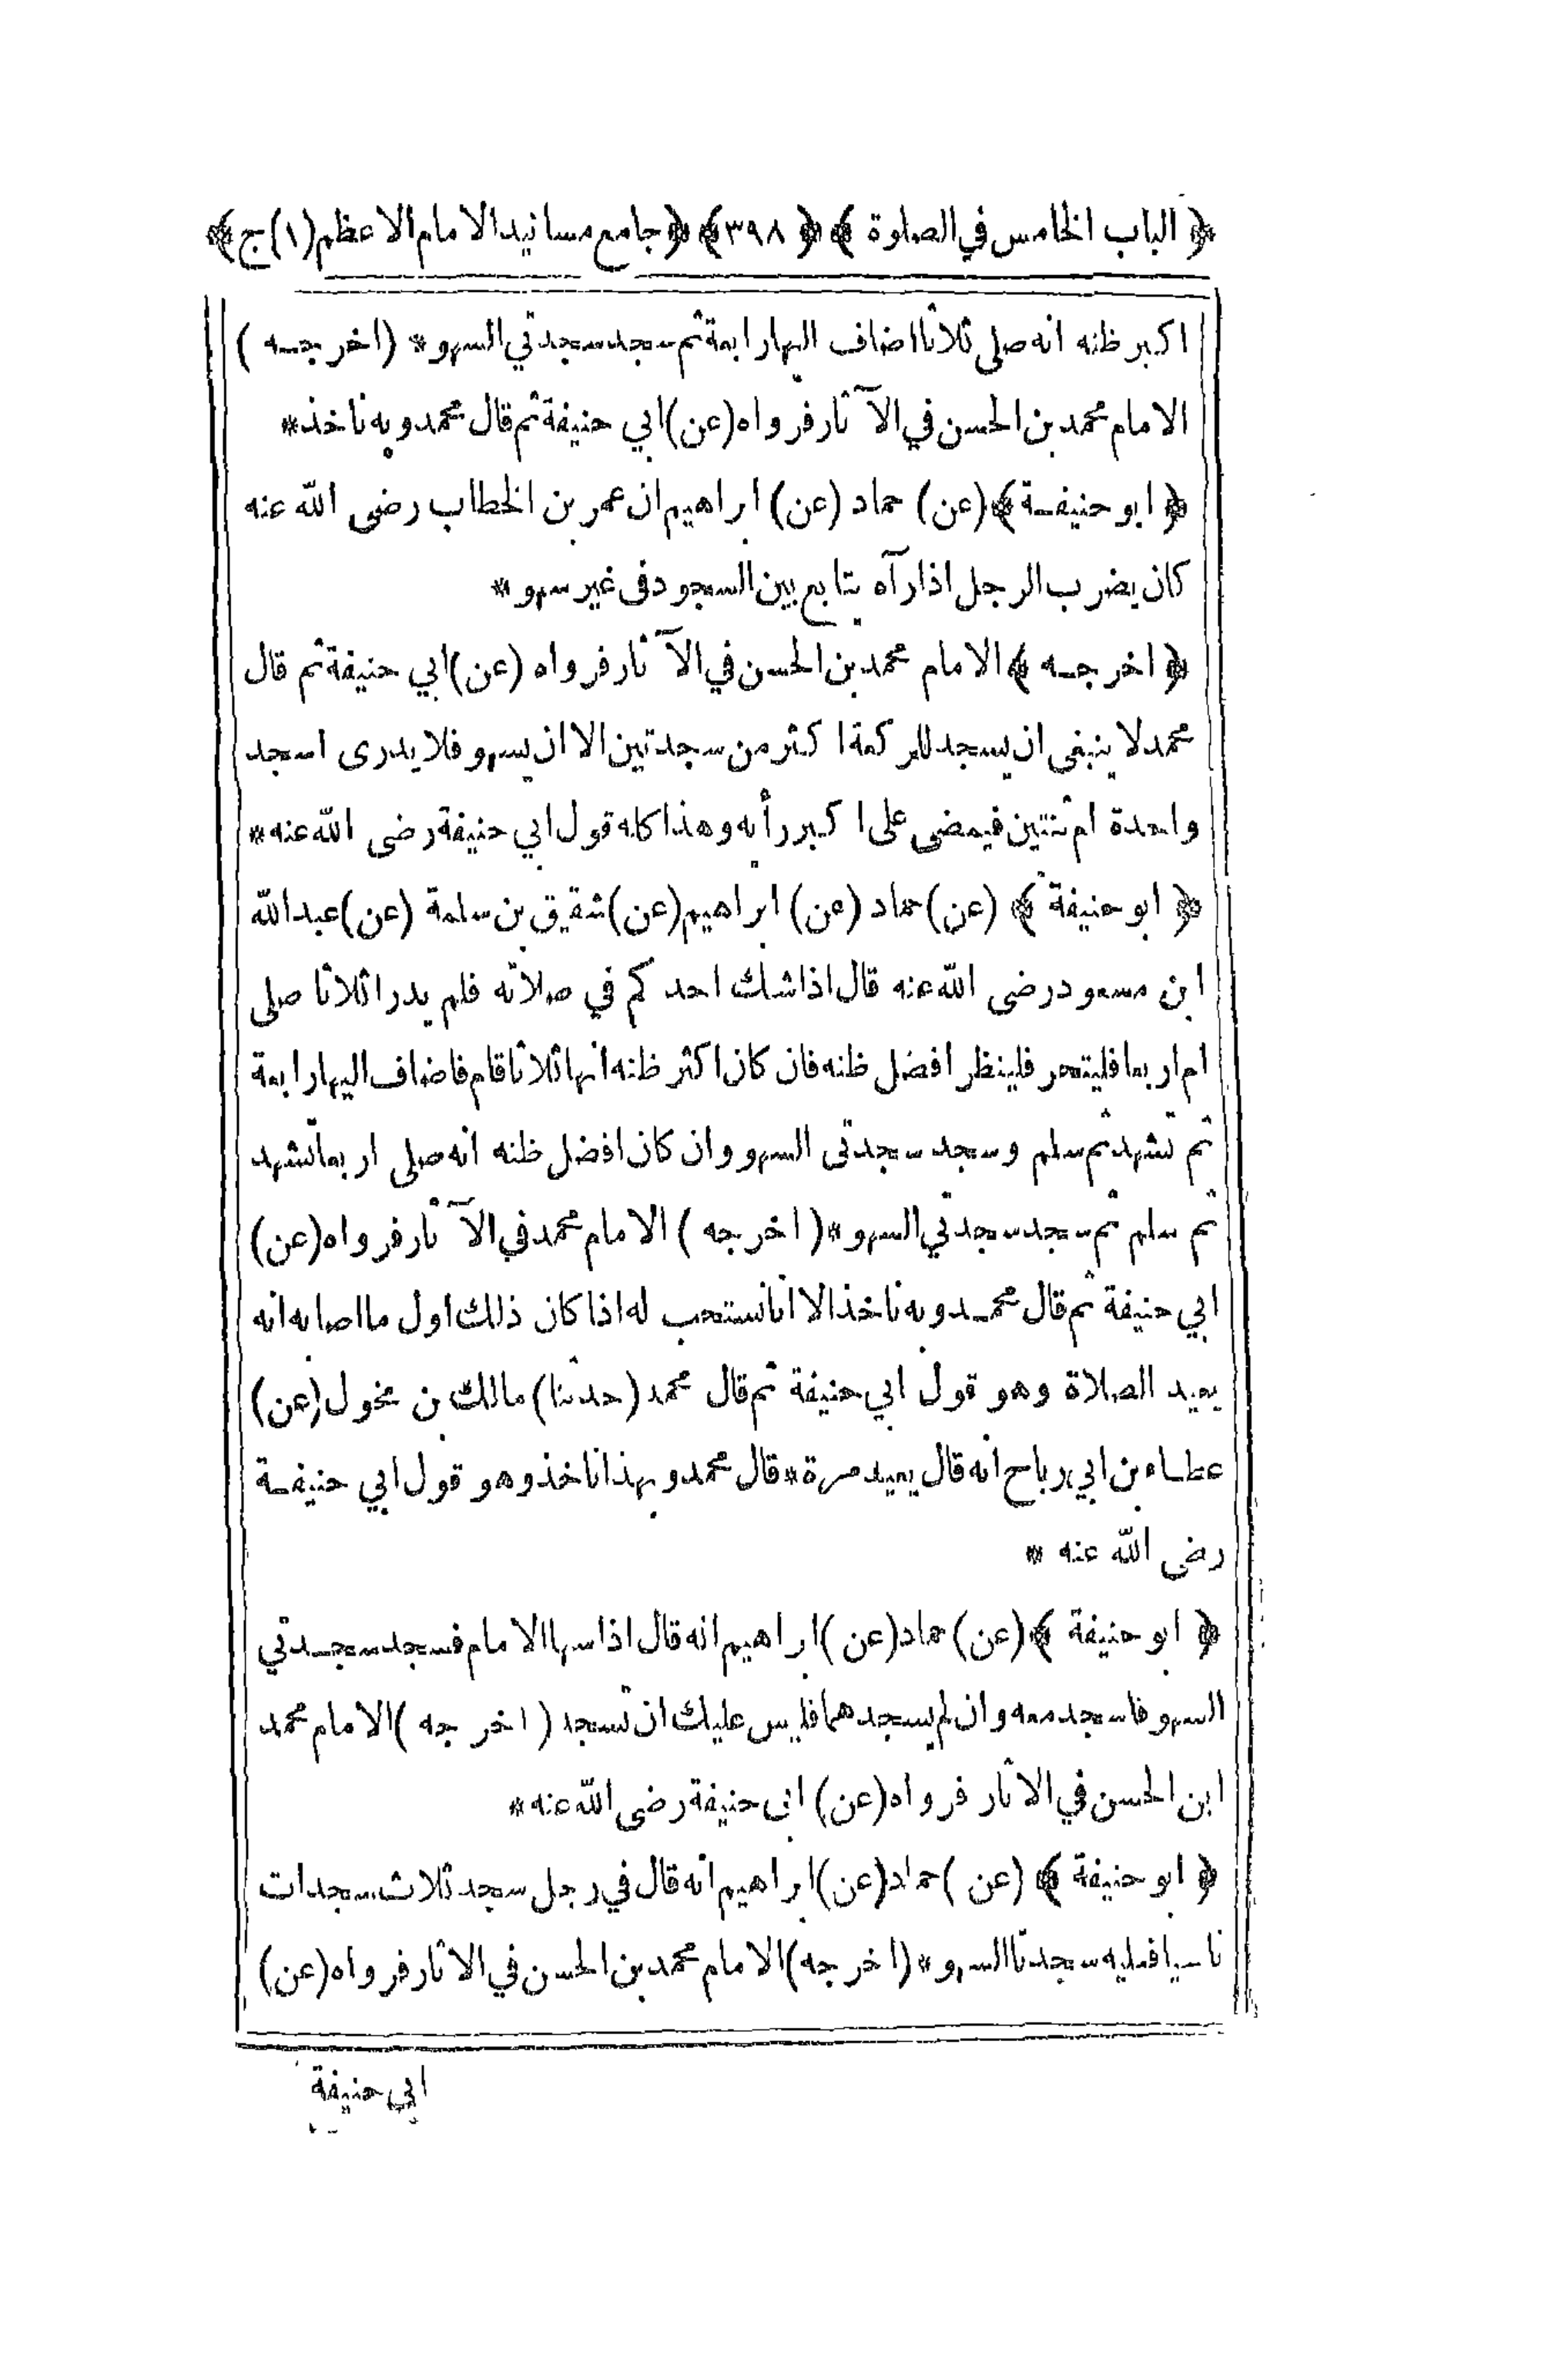 ﴿ الباب الخامس في الصلوة ﴾ ﴿ ٣٩٨ ﴾ ﴿ جامع مسانيد الامام الاعظم (١) ج ﴾
اكبر ظنه انه صلى ثلاثا اضاف اليها رابعة ثم سجد سجدتي السهو * (اخرجه )
الامام محمد بن الحسن في الآثار فرواه (عن) ابي حنيفة ثم قال محمد وبه ناخذ *
﴿ ابو حنيفة ﴾ (عن) حماد (عن) ابراهيم ان عمر بن الخطاب رضى الله عنه
كان يضرب الرجل اذا رآه يتابع بين السجود فى غير سهو *
﴿ اخرجه ﴾ الامام محمد بن الحسن في الآثار فرواه (عن) ابي حنيفة ثم قال
محمد لا ينبغى ان يسجد للركعة اكثر من سجدتين الا ان يسهو فلا يدرى اسجد
واحدة ام ثنتين فيمضى على اكبر رأيه وهذا كله قول ابي حنيفة رضى الله عنه *
﴿ ابو حنيفة ﴾ (عن) حماد (عن) ابراهيم (عن) شقيق بن سلمة (عن) عبد الله
ابن مسعود رضى الله عنه قال اذا شك احدكم في صلاته فلم يدر اثلاثا صلى
ام اربعا فليتحر فلينظر افضل ظنه فان كان اكثر ظنه انها ثلاثا قام فاضاف اليها رابعة
ثم تشهد ثم سلم وسجد سجدتى السهو وان كان افضل ظنه انه صلى اربعا تشهد
ثم سلم ثم سجد سجدتي السهو * ( اخرجه ) الامام محمد في الآثار فرواه (عن)
ابي حنيفة ثم قال محمد وبه ناخذ الا انا نستحب له اذا كان ذلك اول ما اصابه انه
يعيد الصلاة وهو قول ابي حنيفة ثم قال محمد (حدثنا) مالك بن مخول (عن)
عطاء بن ابي رباح انه قال يعيد مرة * قال محمد وبهذا ناخذ وهو قول ابي حنيفة
رضى الله عنه *
﴿ ابو حنيفة ﴾ (عن) حماد (عن) ابراهيم انه قال اذا سها الامام فسجد سجدتي
السهو فاسجد معه وان لم يسجدهما فليس عليك ان تسجد ( اخرجه ) الامام محمد
ابن الحسن في الاثار فرواه (عن) ابى حنيفة رضى الله عنه *
﴿ ابو حنيفة ﴾ (عن ) حماد (عن) ابراهيم انه قال في رجل سجد ثلاث سجدات
ناسيا فعليه سجدتا السهو * (اخرجه) الامام محمد بن الحسن في الاثار فرواه (عن)
ابي حنيفة